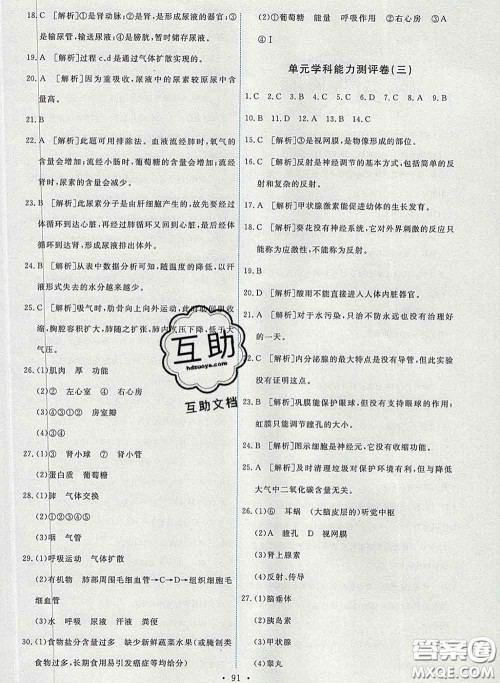 18. C　[解析]①是肾动脉；②是肾，是形成尿液的器官；③
是输尿管，输送尿液；④是膀胱，暂时储存尿液。
19. A　[解析]过程c、d是通过气体扩散实现的。
20. A　[解析]因为重吸收，尿液中的尿素较原尿中含
量高。
21. B
22. A　[解析]此题可用排除法。血液流经肺时，氧气的
含量会增加；流经小肠时，葡萄糖的含量会增加；流经
肾时，尿素的含量会减少。
23. B　[解析]此尿素分子是由肝细胞产生的，故要经过体
循环到达心脏，再经过肺循环又回到心脏，最后经体循
环到达肾脏，形成尿液排出体外。
24. B　[解析]从表中数据分析可知，随温度的降低，以汗
液形式失去的水分越来越少。
25. C　[解析]吸气时，肋骨向上向外运动，此时膈肌收
缩，胸腔容积扩大，肺随之扩大，肺内气压下降，低于大
气压。
26. (1)肌肉　厚　功能
(2)②　左心室　④　右心房
(3)④③①②　房室瓣
(4)④③①②
27. (1)③　肾小球　②　肾小管
(2)蛋白质　葡萄糖
28. (1)肺　气体交换
(2)①②④③
(3)烟　气管
29. (1)呼吸运动　气体扩散
(2)有机物　肺部周围毛细血管→C→D→组织细胞毛
细血管
(3)水　尿液　汗液　粪便
30. (1)食物盐分含量过多　缺少新鲜蔬菜水果(或腌制类
食物过多，长期食用易引发癌症等均给分)
(2)①葡萄糖　能量　呼吸作用　②右心房　③A
④Ⅰ
单元学科能力测评卷(三)
1. C　2. B　3. C　4. C　5. D　6. A　7. D　8. A　9. B
10. C　11. D　12. B　13. C　14. B
15. C　[解析]③是视网膜，是物像形成的部位。
16. C　[解析]反射是神经调节的基本方式，包括简单的反
射和复杂的反射。
17. A　[解析]甲状腺激素能促进幼体的生长发育。
18. C　[解析]葵花没有神经系统，它对外界刺激的反应只
能称为应激性，不能称为反射。
19. B
20. C　[解析]酸雨不能直接进入人体内脏器官。
21. C　[解析]水体自净没有辅助治疗的情况是没有治好
的一天。
22. C　[解析]内分泌腺的最大特点是没有导管，但此实验
没有证明这点。
23. B　[解析]巩膜能保护眼球，但没有支持眼球的作用；
虹膜只能调节瞳孔的大小。
24. C　[解析]图示细胞是神经元，它没有收缩功能。
25. A　[解析]及时清理垃圾对保护环境有利，但不能降低
大气中二氧化碳含量无关。
26. (1)⑥　耳蜗　(大脑皮层的)听觉中枢
(2)A　瞳孔　D　视网膜
(3)肾上腺素
(4)反射、传导
27. (1)脑垂体
(2)胰岛
(3)甲状腺
(4)睾丸
互助
hdzuoye.com
互助文档
91
答案圈
MXQE.COM